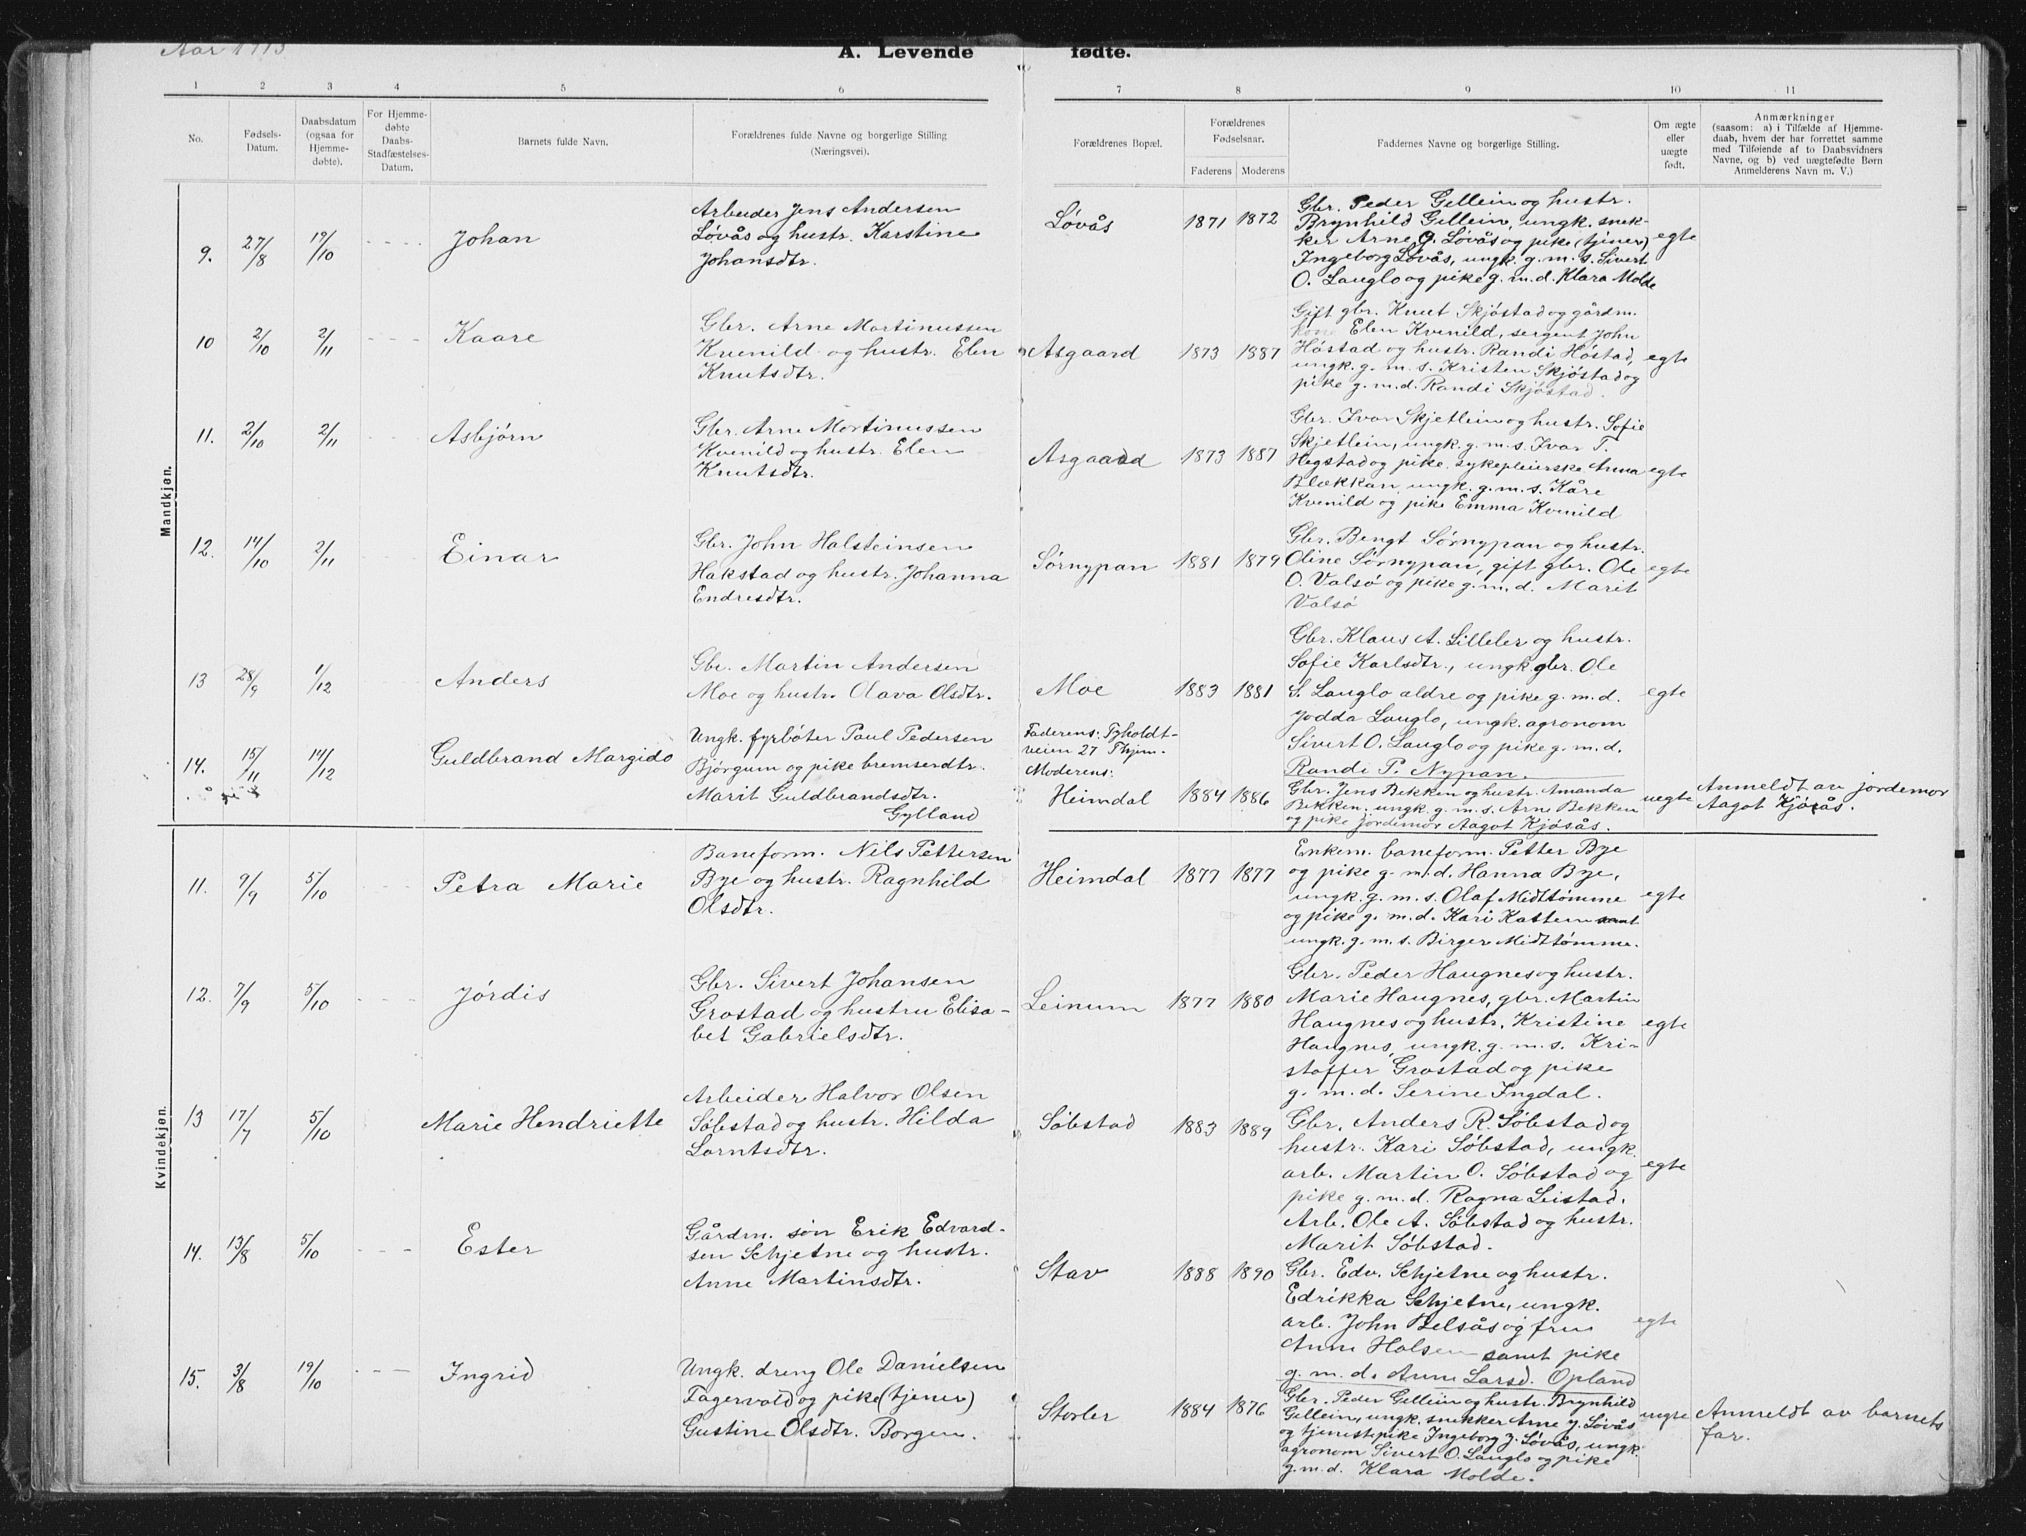 Aar 1913
A. Levende fødte.
1 2 3 4 5 6 7 8 9 10 11
No.
Fødsels-
Datum.
Daabsdatum
(ogsaa for
Hjemme-
døbte).
For Hjemme-
døbte
Daabs-
Stadfæstelses-
Datum.
Barnets fulde Navn.
Forældrenes fulde Navne og borgerlige Stilling
(Næringsvei).
Forældrenes Bopæl.
Forældrenes
Fødselsaar.
Faderens Moderens
Faddernes Navne og borgerlige Stilling.
Om ægte
eller
uægte
født.
Anmærkninger
(saasom: a) i Tilfælde af Hjemme-
daab, hvem der har forrettet samme
med Tilføiende af to Daabsvidners
Navne, og b) ved uægtefødte Børn
Anmelderens Navn m. V.)
Mandkjøn.
9. 27/8 19/10 Johan
Arbeider Jens Andersen
Løvås og hustr. Karstine
Johansdtr.
Løvås 1871 1872
Gbr. Peder Gellein og hustr.
Brynhild Gellein, ungk. snek-
ker Arne J. Løvås og pike (tjener)
Ingeborg Løvås, ungk. g. m. s. Sivert
O. Lauglo og pike g. m. d. Klara Molde
egte
10 2/10 2/11 Kaare
Gbr. Arne Martinussen
Kvenild og hustr. Elen
Knutsdtr.
Asgaard 1873 1887
Gift gbr. Knut Skjøstad og gårdm.
kone Elen Kvenild, sergent John
Høstad og hustr. Randi Høstad,
ungk. g. m. s. Kristen Skjøstad og
pike g. m. d. Randi Skjøstad.
egte
11. 2/10 2/11 Asbjørn
Gbr. Arne Martinussen
Kvenild og hustr. Elen
Knutsdtr.
Asgaard 1873 1887
Gbr. Ivar Skjetlein og hustr. Sofie
Skjetlein, ungk. g. m. s. Ivar T.
Hegstad og pike, sykepleierske Anna
Blækkan, ungk. g. m. s. Kåre
Kvenild og pike Emma Kvenild
egte
12. 14/10 2/11 Einar
Gbr. John Halsteinsen
Hakstad og hustr. Johanna
Endresdtr.
Sørnypan 1881 1879
Gbr. Bengt Sørnypan og hustr.
Oline Sørnypan, gift gbr. Ole
O. Valsø og pike g. m. d. Marit
Valsø
egte
13 28/9 1/12 Anders
Gbr. Martin Andersen
Moe og hustr. Olava Olsdtr.
Moe 1883 1881
Gbr. Klaus A. Lilleler og hustr.
Sofie Karlsdtr., ungk. gbr. Ole
S. Lauglo ældre og pike g. m. d.
Jodda Lauglo, ungk. agronom
Sivert O. Lauglo og pike g. m. d.
Randi P. Nypan.
egte
14. 15/11 14/12 Guldbrand Margido
Ungk. fyrbøter Paul Pedersen
Bjørgum og pike bremserdtr.
Marit Guldbrandsdtr.
Gylland
Faderens: Tyholdt-
veien 27 Thjem.
Moderens:
Heimdal 1884 1886
Gbr. Jens Bekken og hustr. Amanda
Bekken, ungk. g. m. s. Arne Bekken
og pike jordemor Aagot Kjøsås.
uegte
Anmeldt av jordemor
Aagot Kjøsås.
Kvindekjøn.
11. 9/9 5/10 Petra Marie
Baneform. Nils Pettersen
Bye og hustr. Ragnhild
Olsdtr.
Heimdal 1877 1877
Enkem. baneform. Petter Bye
og pike g. m. d. Hanna Bye,
ungk. g. m. s. Olaf Midttømme
og pike g. m. d. Kari Kattem samt
ungk. g. m. s. Birger Midttømme.
egte
12. 7/9 5/10 Jørdis
Gbr. Sivert Johansen
Grostad og hustru Elisa-
bet Gabrielsdtr.
Leinum 1877 1880
Gbr. Peder Haugnes og hustr.
Marie Haugnes, gbr. Martin
Haugnes og hustr. Kristine
Haugnes, ungk. g. m. s. Kri-
stoffer Grostad og pike
g. m. d. Serine Ingdal.
egte
13 17/7 5/10 Marie Hendriette
Arbeider Halvor Olsen
Søbstad og hustr. Hilda
Lorntsdtr.
Søbstad 1883 1889
Gbr. Anders R. Søbstad og
hustr. Kari Søbstad, ungk.
arb. Martin O. Søbstad og
pike g. m. d. Ragna Leistad.
Arb. Ole A. Søbstad og hustr.
Marit Søbstad.
egte
14. 13/8 5/10 Ester
Gårdm. søn Erik Edvard-
sen Schjetne og hustr.
Anne Martinsdtr.
Stav 1888 1890
Gbr. Edv. Schjetne og hustr.
Edrikka Schjetne, ungk.
arb. John Belsås og fru
Anne Halsen samt pike
g. m. d. Anne Larsd. Opland
egte
15. 3/8 19/10 Ingrid
Ungk. dreng Ole Danielsen
Fagervold og pike (tjener)
Gustine Olsdtr. Borgen.
Storler 1884 1876
Gbr. Peder Gellein og hustr. Brynhild
Gellein, ungk. snekker Arne J. Løvås
og tjenestepike Ingeborg J. Løvås, ungk.
agronom Sivert O. Lauglo og pike
g. m. d. Klara Molde.
uegte
Anmeldt av barnets
far.